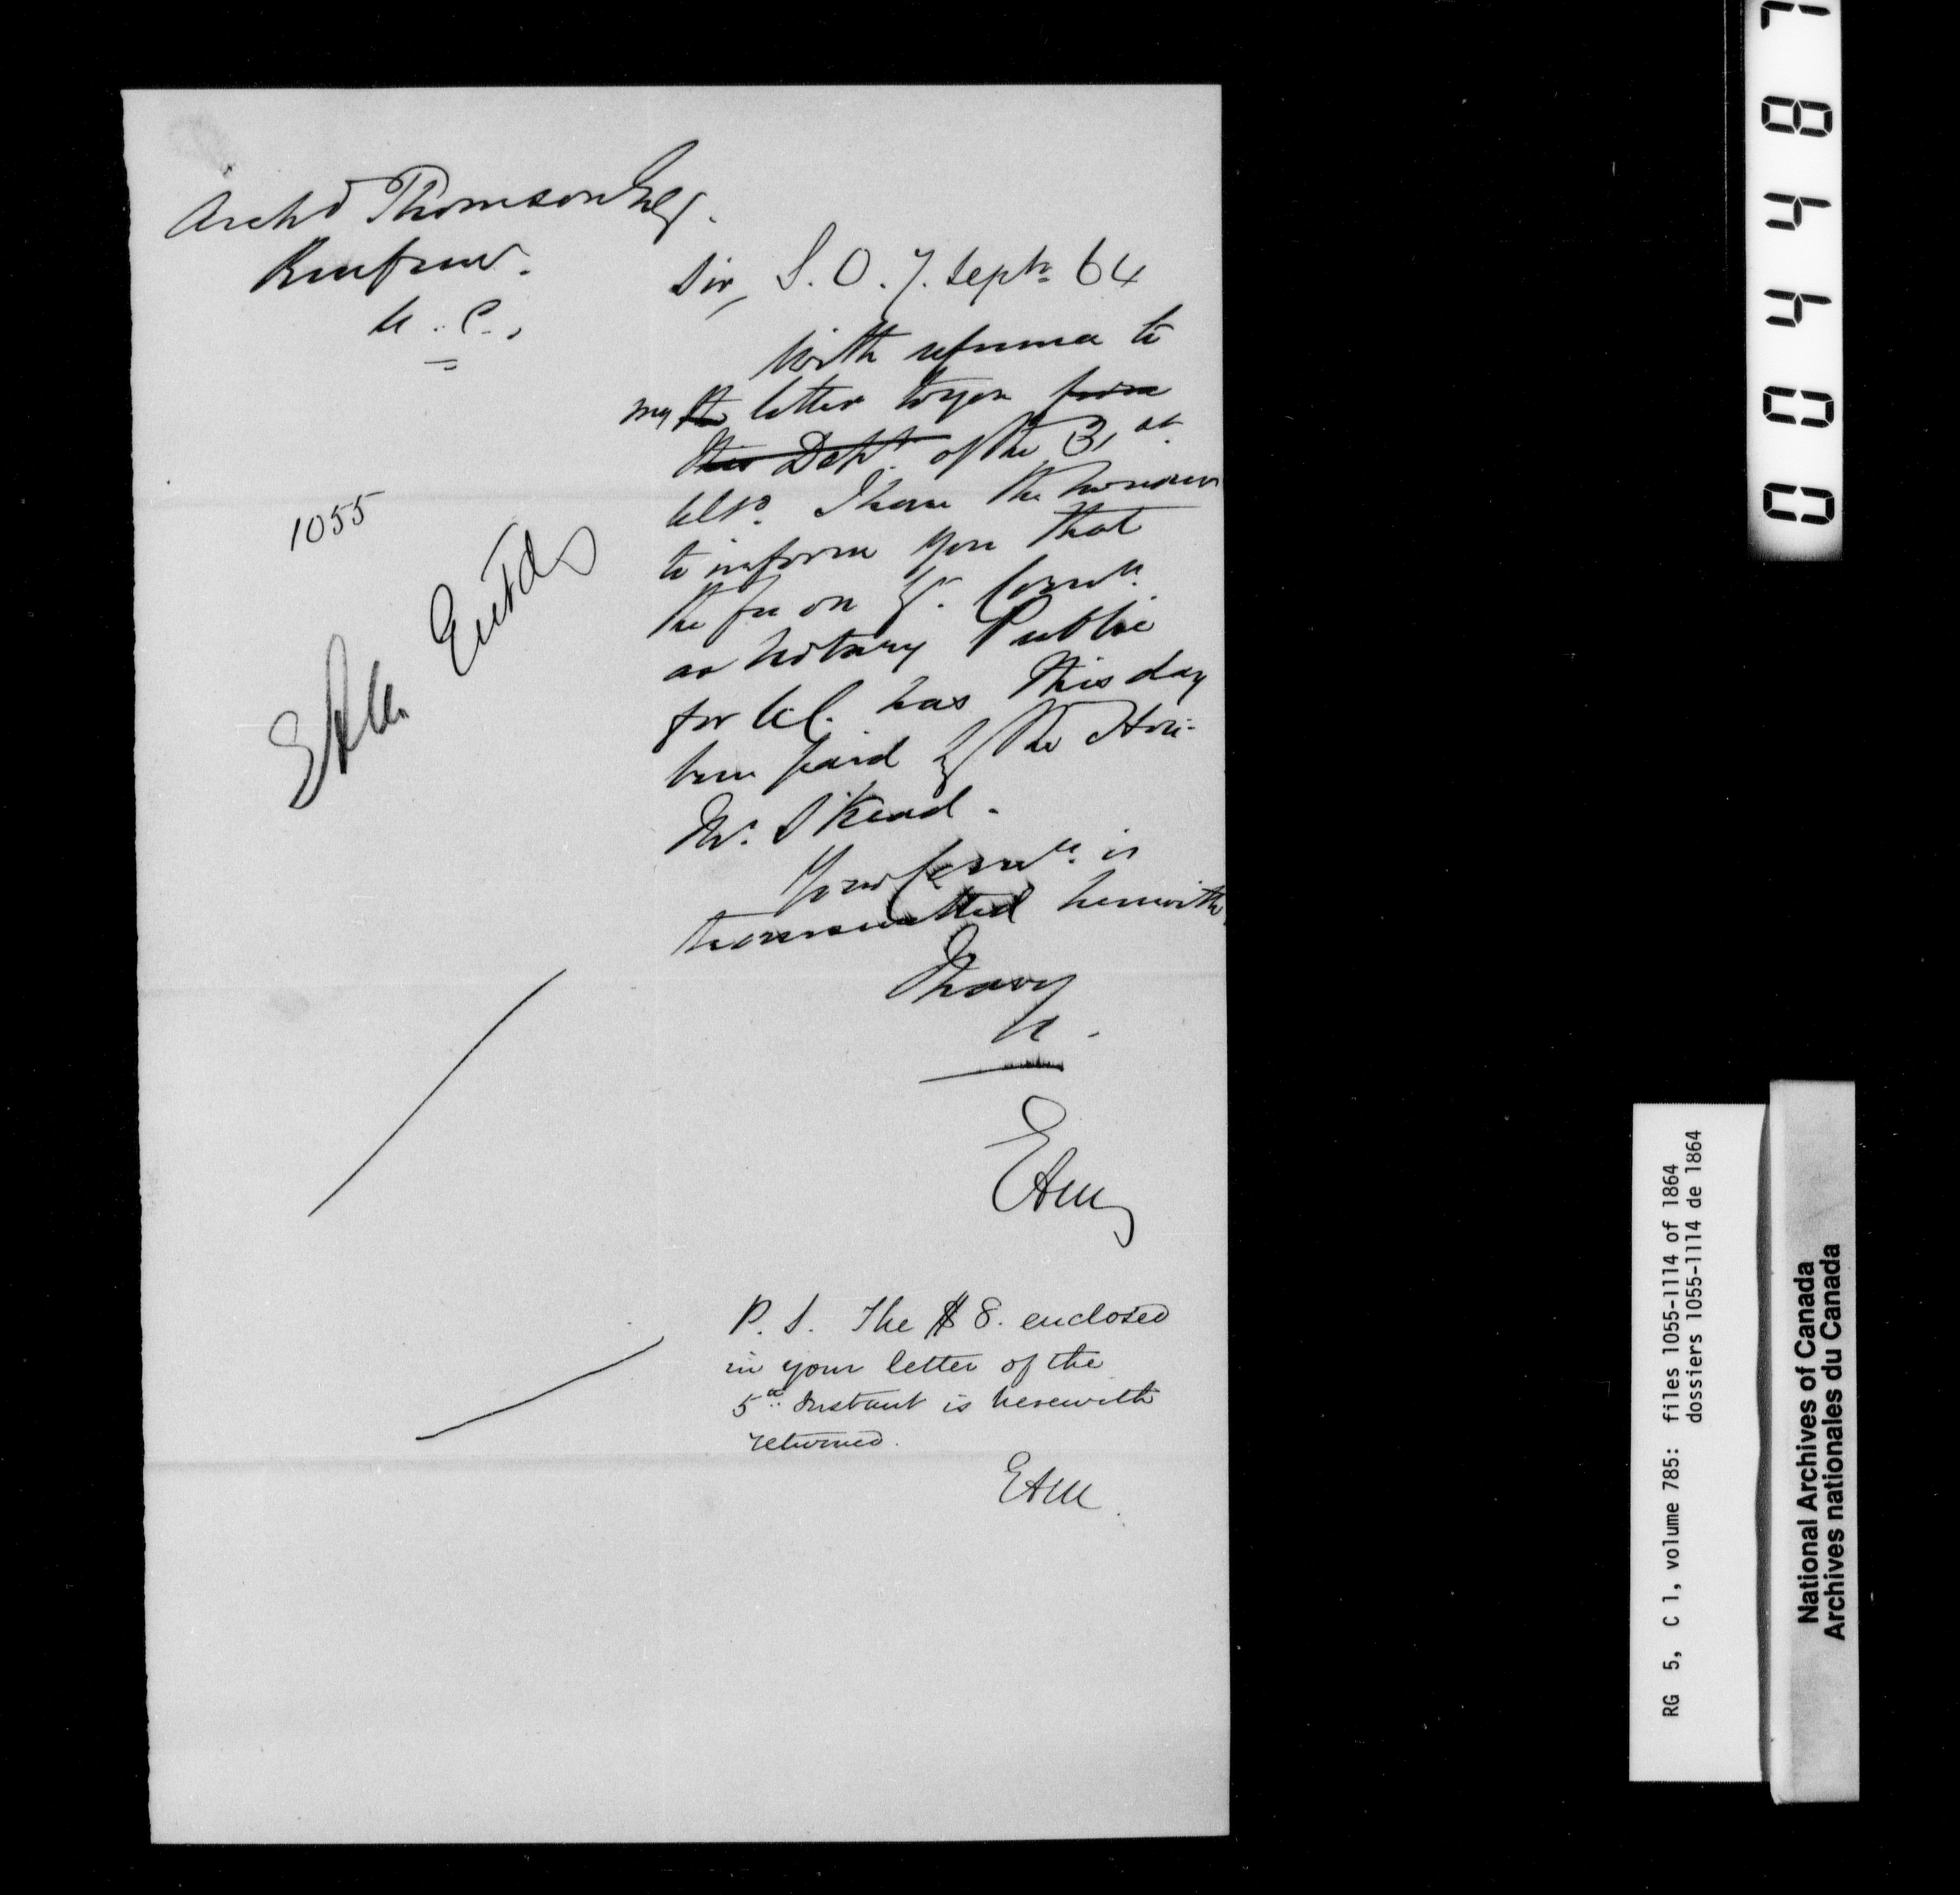 Archd Thomson Esq.
Renfrew.
U. C.,
1055
EAM Entd
S. O. 7. Septr 64
Sir,
With reference to
my the letter to you from
this Dept of the 31st
Ulto. I have the honour
to inform you that
the fee on yr. Commn.
as Notary Public
for U.C. has this day
been paid by the Hon:
Mr. Skead.
Your Commn. is
transmitted herewith
I have
&
EAM
P. S. The $8. enclosed
in your letter of the
5th Instant is herewith
returned.
EAM
004487
RG 5, C 1, volume 785: files 1055-1114 of 1864
dossiers 1055-1114 de 1864
National Archives of Canada
Archives nationales du Canada